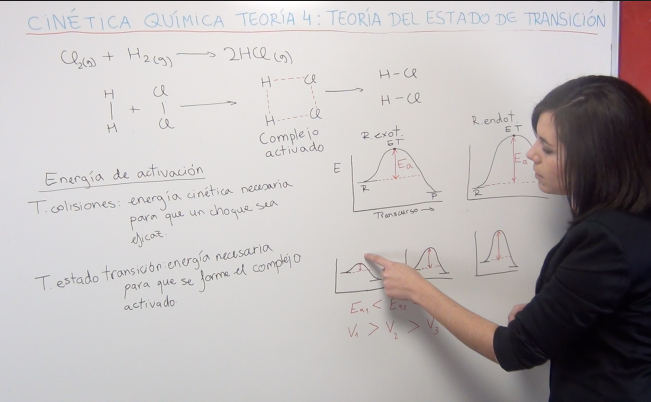 CINÉTICA QUÍMICA TEORÍA 4: TEORÍA DEL ESTADO DE TRANSICIÓN
Cl₂(g) + H₂(g) → 2HCl(g)
H Cl H Cl H-Cl
+ → →
H Cl H Cl H-Cl
Complejo
activado
Energía de activación
T. colisiones: energía cinética necesaria
para que un choque sea
eficaz.
T. estado transición: energía necesaria
para que se forme el complejo
activado
R. exot.
ET
E
Ea
R
P
Transcurso →
R. endot.
ET
Ea
R
Ea₁ < Ea₂
V₁ > V₂ > V₃